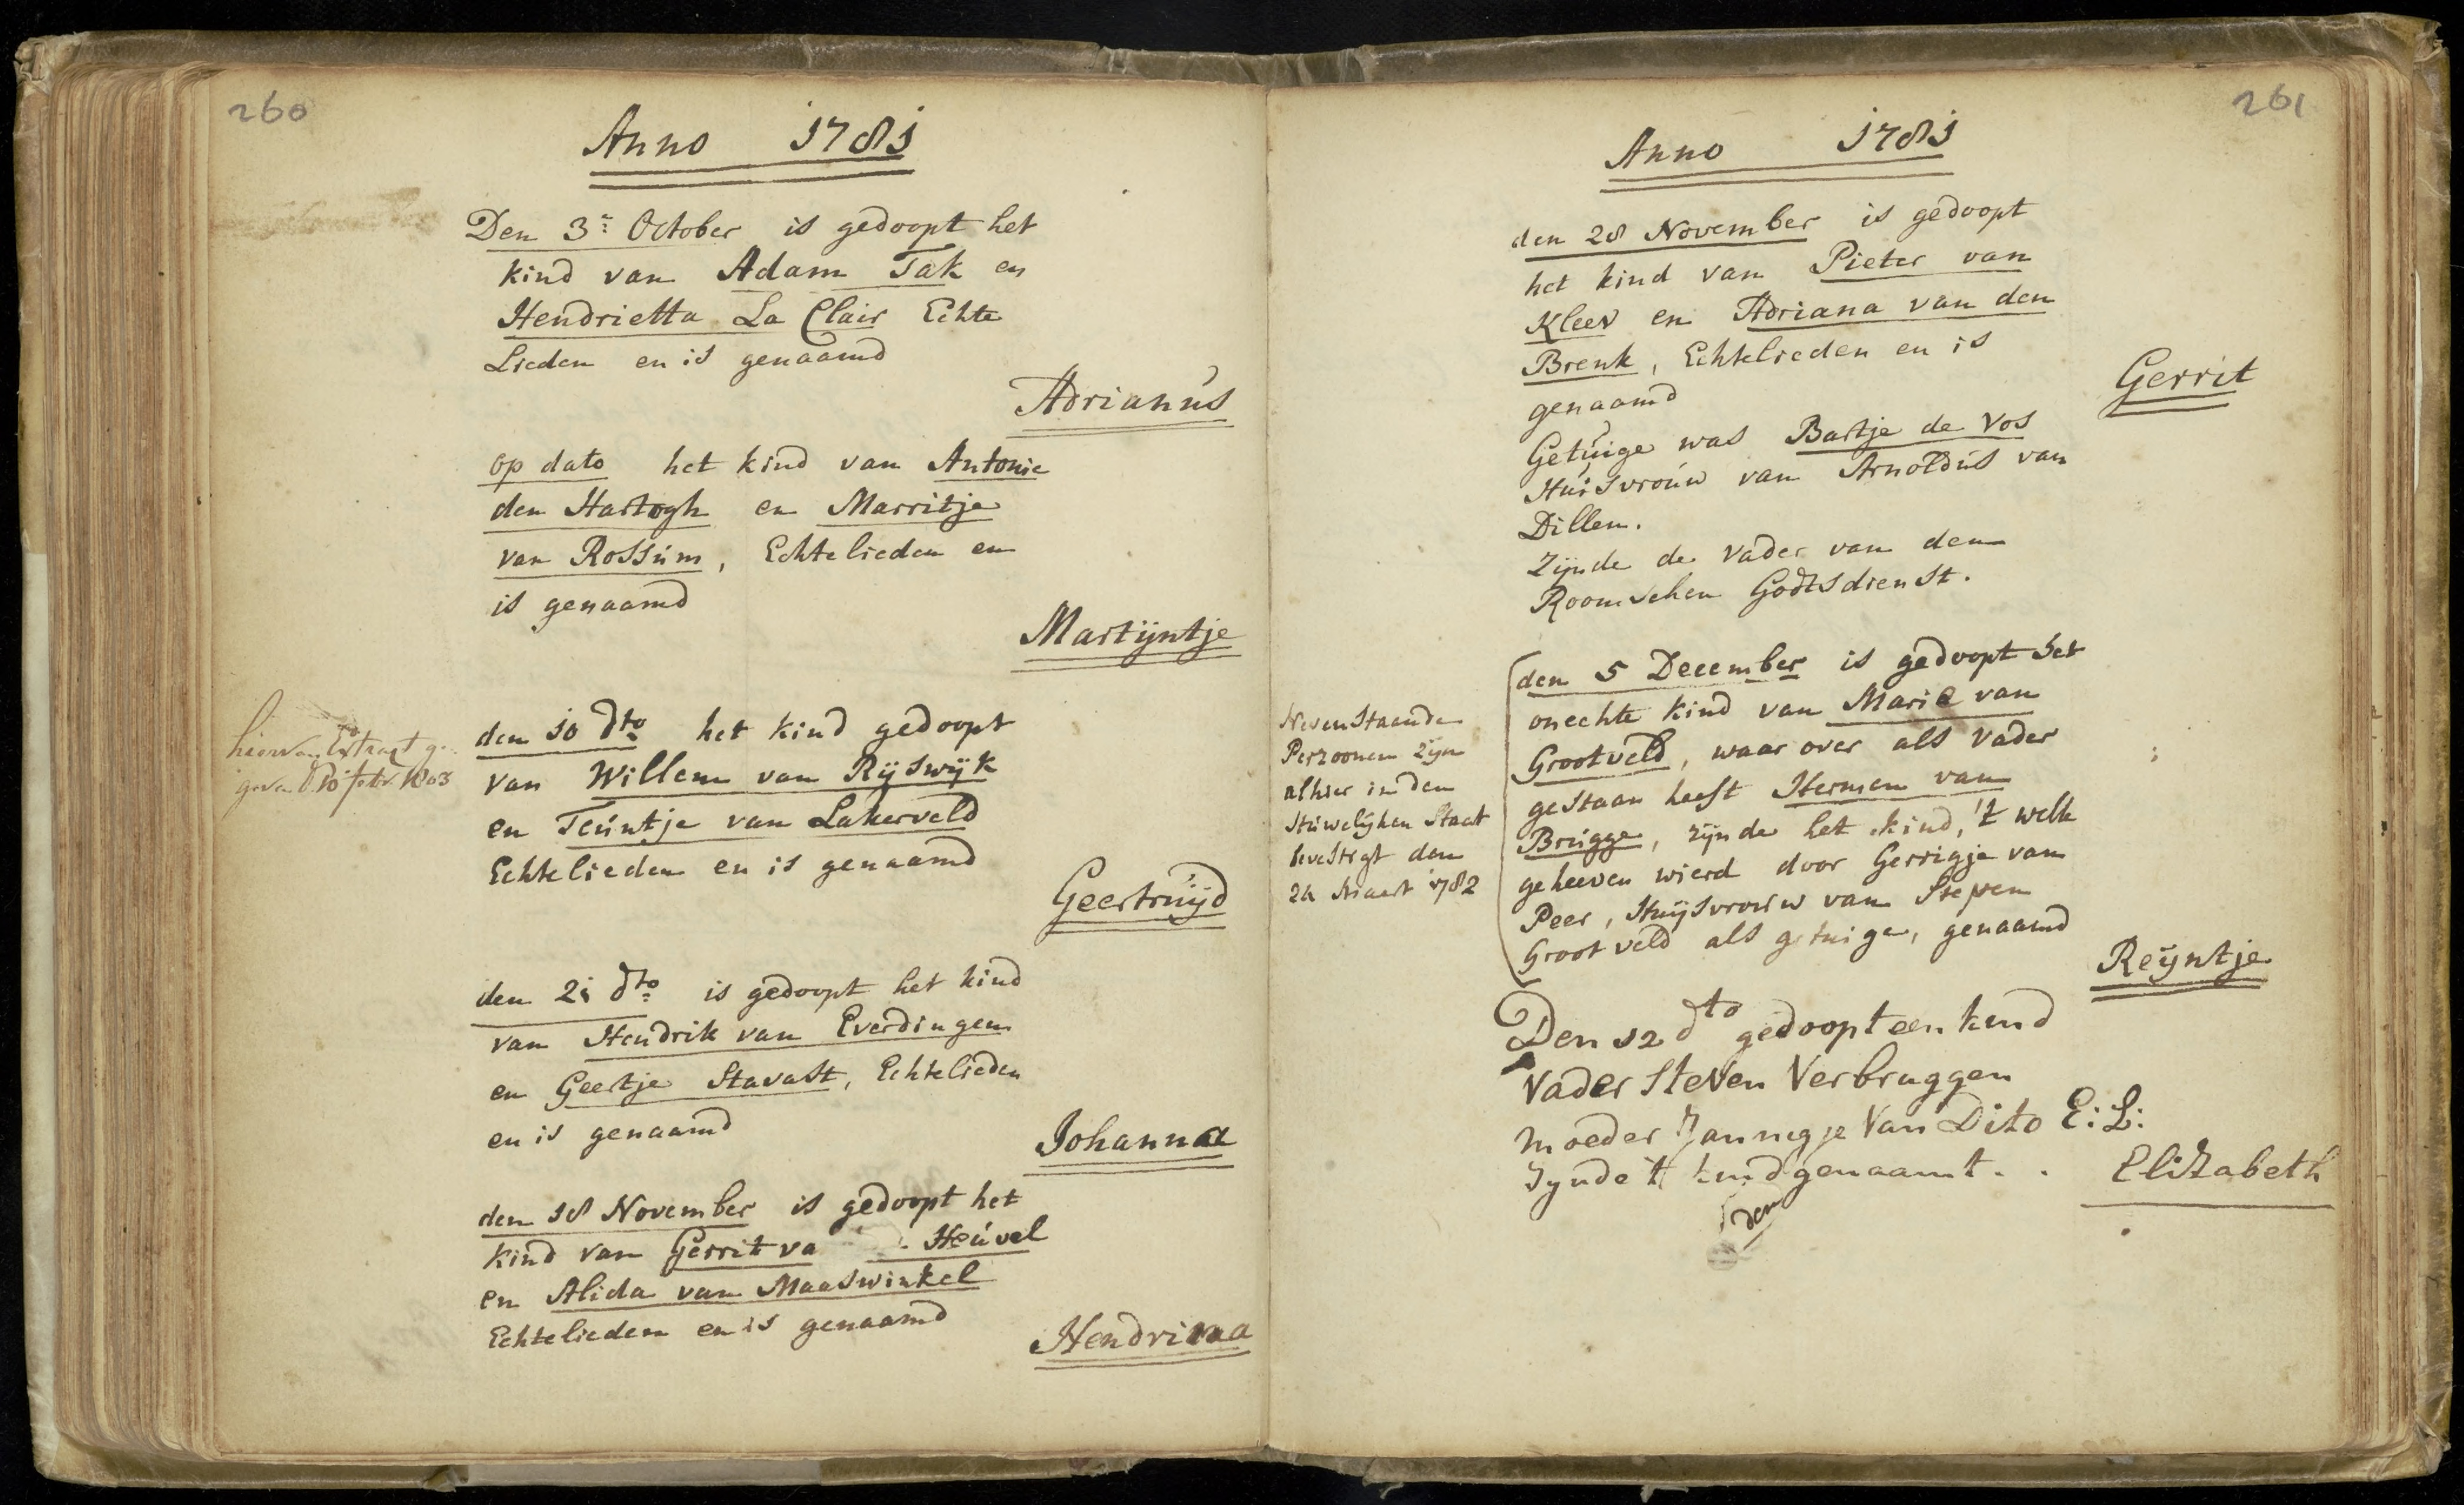 260
Anno 1781
Den 3e October is gedoopt het
kind van Adam Tak en
Hendrietta La Clair Echte
Lieden en is genaamd
Adrianus
op dato het kind van Antonie
den Hartogh en Marritje
van Rossum, Echtelieden en
is genaamd
Martijntje
hiervan Extract ge
geven
1803
den 10 dto het kind gedoopt
van Willem van Rijswijk
en Teuntje van Lakerveld
Echtelieden en is genaamd
Geertruijd
den 21 dto is gedoopt het kind
van Hendrik van Everdingen
en Geertje Stavast, Echtelieden
en is genaamd
Johanna
den 18 November is gedoopt het
kind van Gerrit va Heuvel
en Alida van Maaswinkel
Echtelieden en is genaamd
Hendrina
261
Anno 1781
den 28 November is gedoopt
het kind van Pieter van
Kleev en Adriana van den
Brenk, Echtelieden en is
genaamd
Gerrit
Getuige was Bartje de Vos
Huisvrouw van Arnoldus van
Dillen.
Zijnde de Vader van den
Roomschen Godtsdienst.
Nevenstaande
Perzoonen zijn
alhier in den
Huwelijken Staat
bevestigt den
24 Maart 1782
den 5 December is gedoopt het
onechte kind van Maria van
Grootveld, waar over als Vader
gestaan heeft Herman van
Brugge, zijnde het kind, 't welk
geheeven wierd door Gerrigje van
Peer, Huijsvrouw van Steven
Grootveld als getuige, genaamd
Reijntje
Den 12 dto gedoopt een kind
Vader Steven Verbruggen
moeder Jannigje Van Dito E: L:
Zynde 't kind genaamt . .
Elizabeth
den